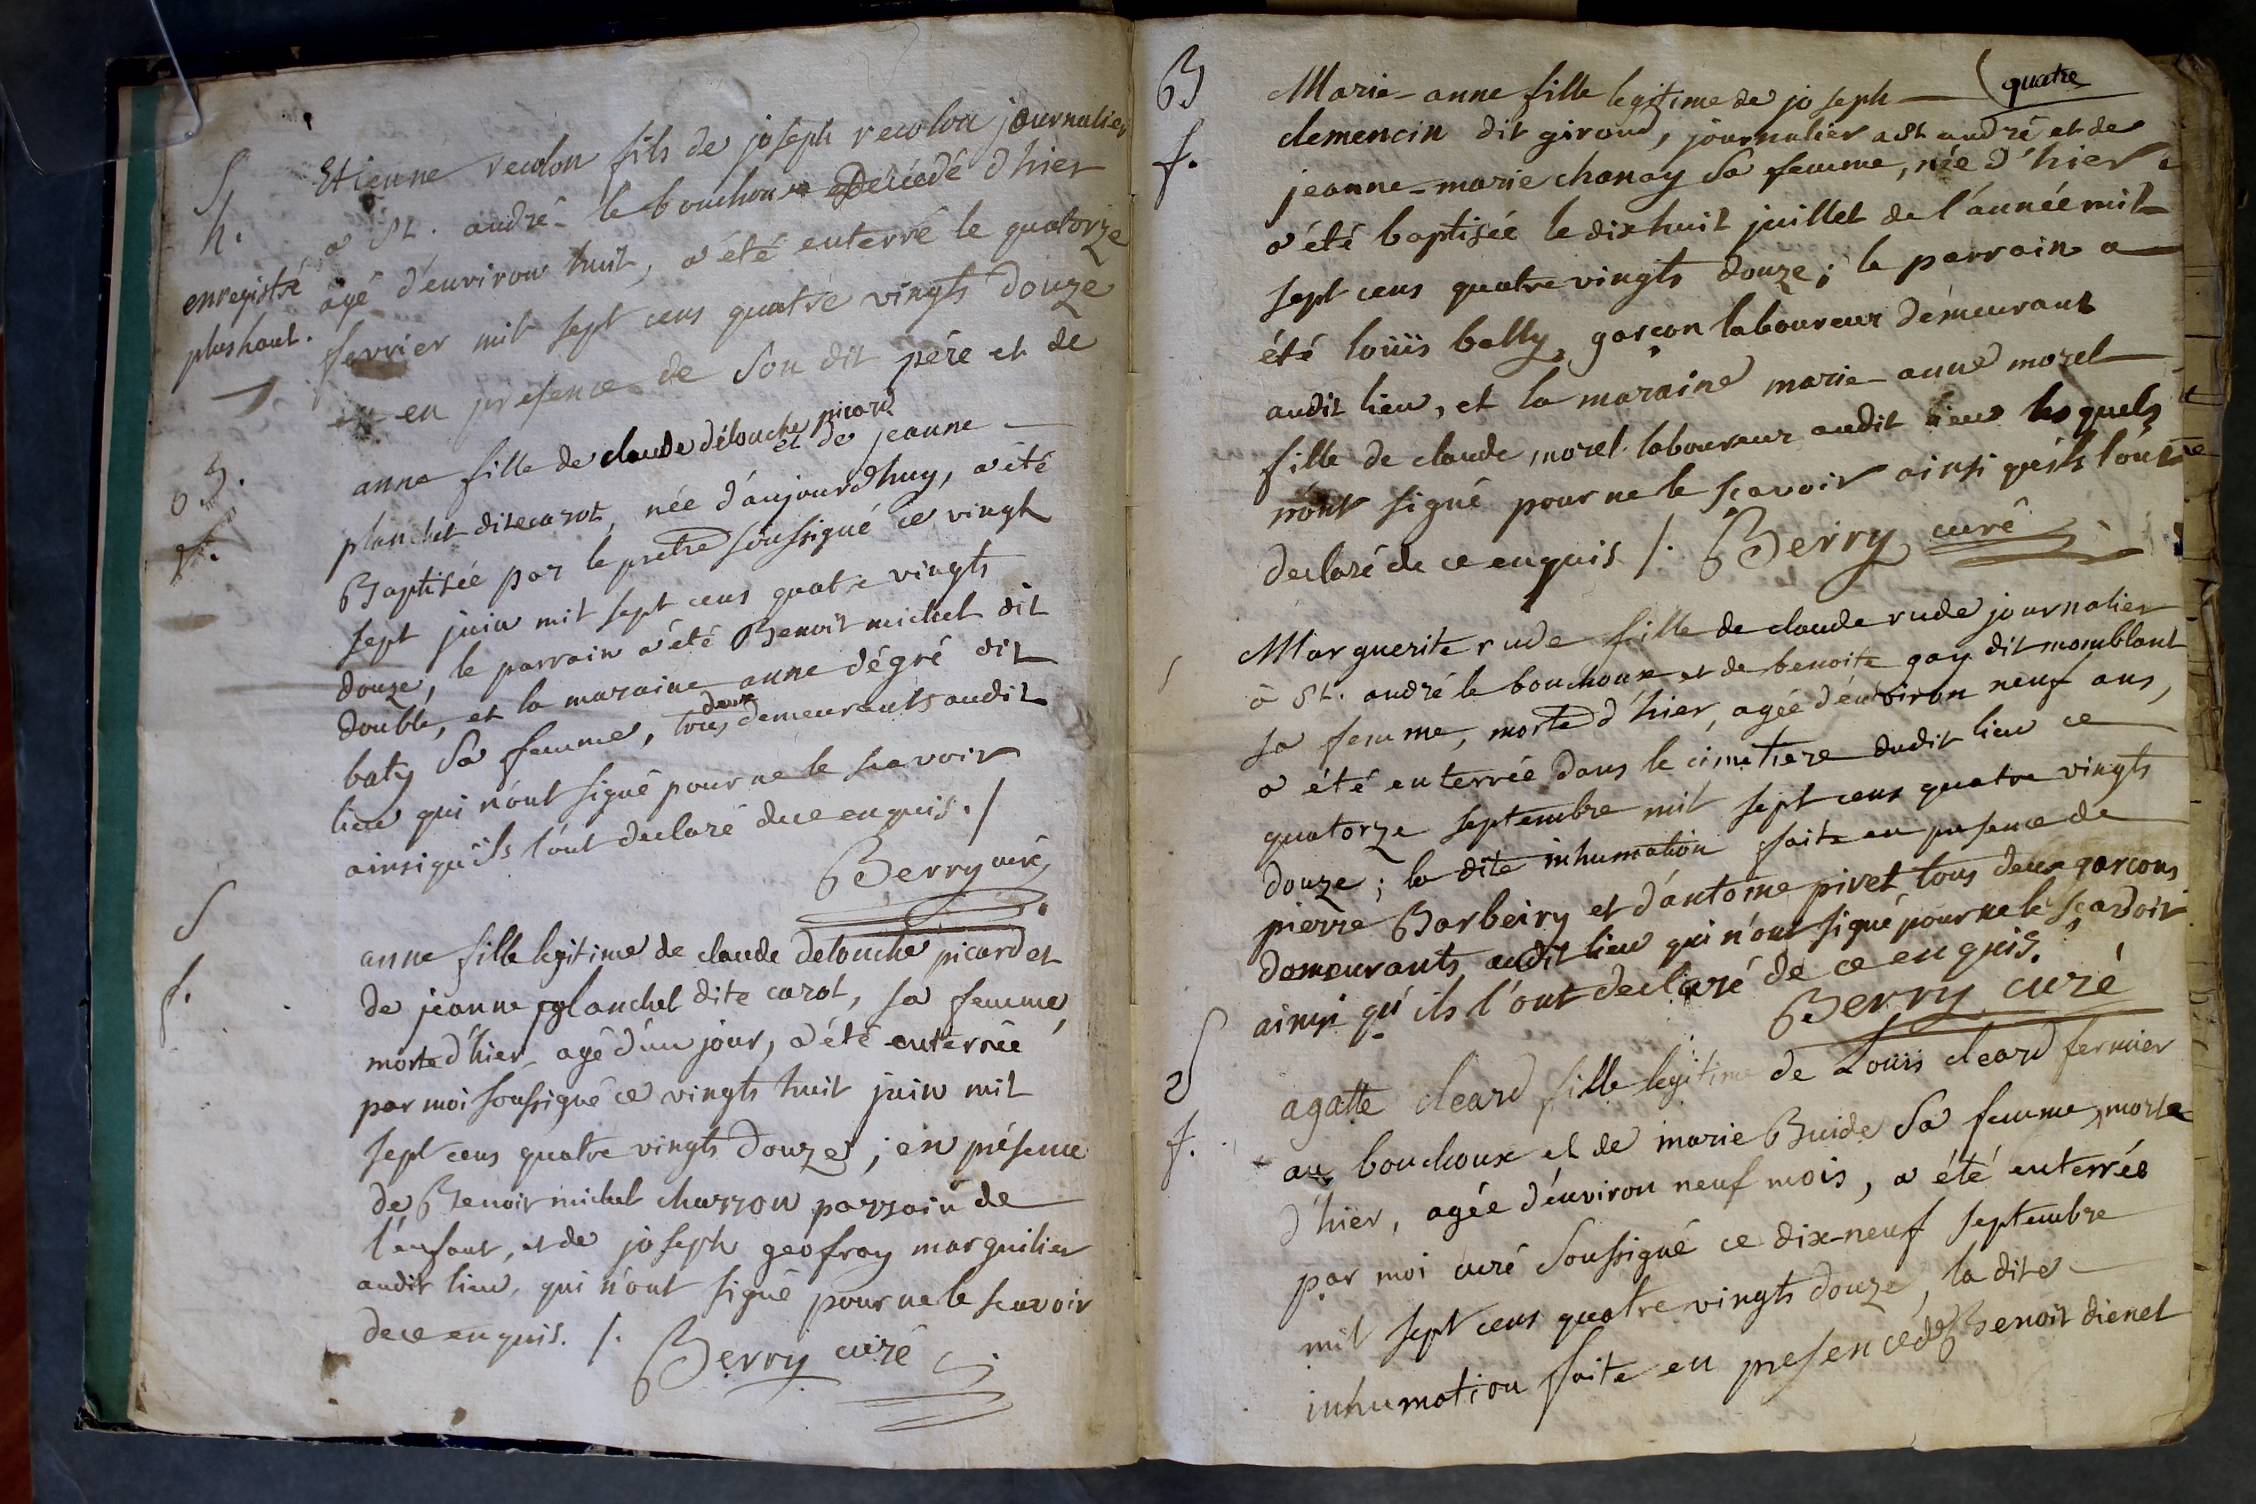 S
h.
enregistré
plus haut.
Etienne recolon fils de joseph recolon journalier
a St. andré le bouchoux Décédé d'hier
agé d'environ huit, a été enterré le quatorze
fevrier mil sept cens quatre vingts douze
en presence de Son dit père et de
B.
f.
anne fille de claude délouche picard
et de jeanne
planchet dite carot, née d'aujourdhuy, a été
Baptisée par le pretre soussigné ce vingt
sept juin mil sept cens quatre vingts
douze, le parrain a été Benoit michel dit
double, et la maraine anne dégré dit
baty Sa femme, tous deux demeurants audit
lieu qui n'ont signé pour ne le scavoir
ainsi qu'ils l'ont declaré de ce enquis ./
Berry curé
S
f.
anne fille legitime de claude delouche picard et
de jeanne planchet dite carot, sa femme,
morte d'hier agé d'un jour, a été enterrée
par moi soussigné ce vingts huit juin mil
sept cens quatre vingts Douze, en présence
de Benoit michel charron parrain de
l'enfant, et de joseph geofray marguilier
audit lieu, qui n'ont signé pour ne le scavoir
de ce enquis. /. Berry curé
quatre
B
f.
Marie-anne fille legitime de joseph
clemencin dit giroud, journalier a St andré et de
jeanne-marie chanay Sa femme, née d'hier
a été baptisée le dixhuit juillet de l'année mil
sept cens quatre vingts douze; le parrain a
été loüis bally, garçon laboureur demeurant
audit lieu, et la maraine marie-anne morel
fille de claude morel laboureur audit lieu lesquels
n'ont signé pour ne le scavoir ainsi qu'ils l'ont
declaré de ce enquis /. Berry curé
Marguerite rude fille de claude rude journalier
à St. andré le bouchoux et de benoite gay dit momblant
sa femme, morte d'hier, agée d'environ neuf ans,
a été enterrée dans le cimetiere dudit lieu ce
quatorze septembre mil sept cens quatre vingts
douze; la dite inhumation faite en presence de
pierre Barbeiry et d'antoine pivet tous deux garçons
demeurants audit lieu qui n'ont signé pour ne le scavoir
ainsi qu'ils l'ont declaré de ce enquis.
Berry curé
S
f.
agatte cleard fille legitime de Louis cleard fermier
au bouchoux et de marie Buide Sa femme, morte
d'hier, agée d'environ neuf mois, a été enterrée
par moi curé Soussigné ce dix-neuf septembre
mil sept cens quatre vingts douze, la dite
inhumation faite en presence de Benoit dienet